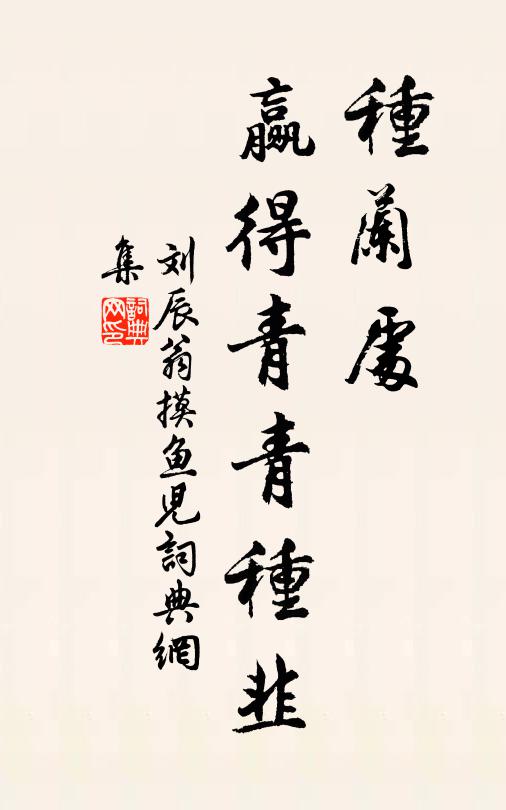 種蘭處
贏得青青種韭
刘辰翁摸魚児詞典網
集
詞典網印